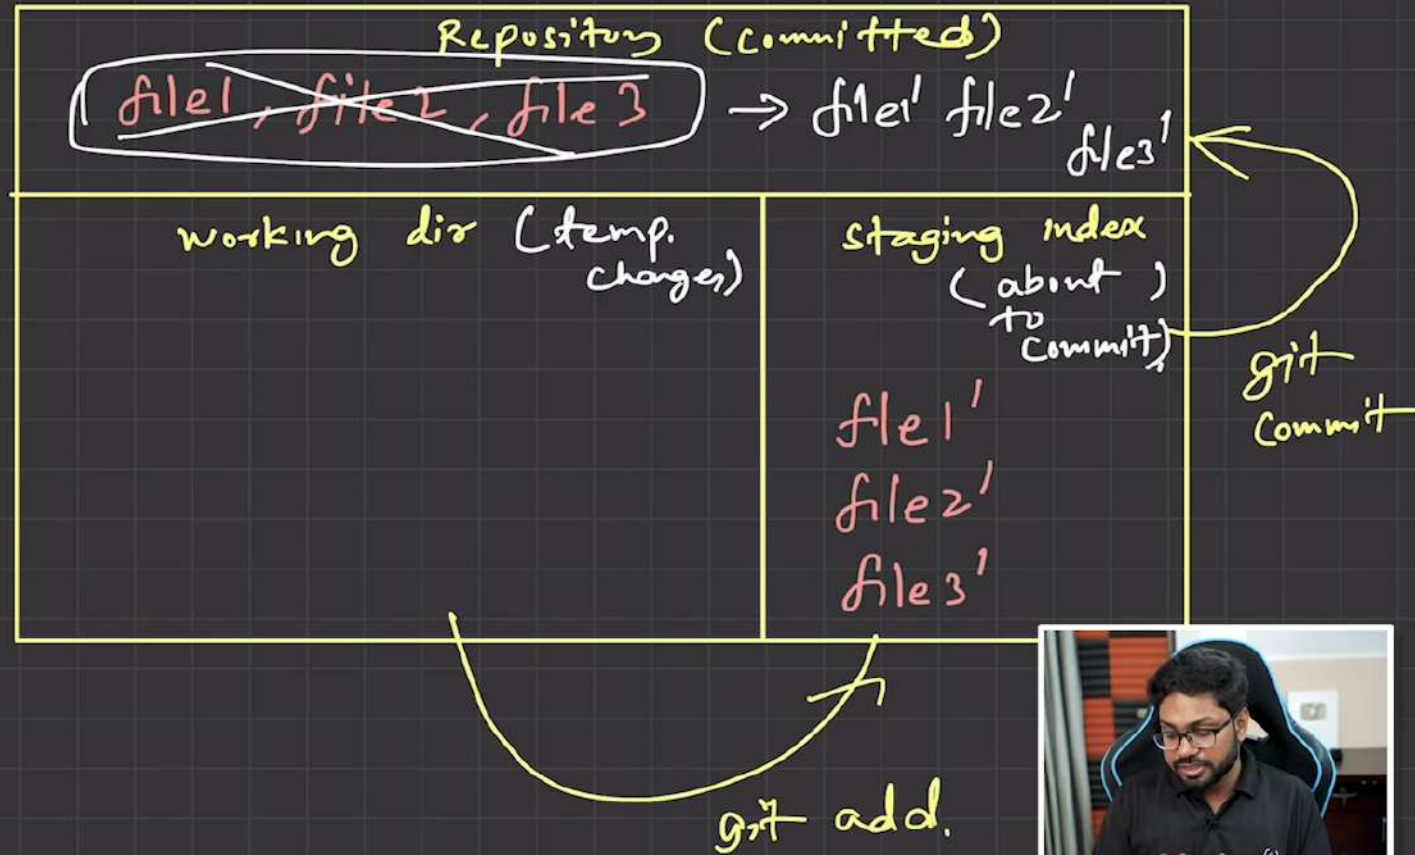 Repository (committed)
file1, file2, file3 → file1' file2'
file3'
working dir (temp.
changes)
staging index
(about )
to
commit)
file1'
file2'
file3'
git
commit
git add.